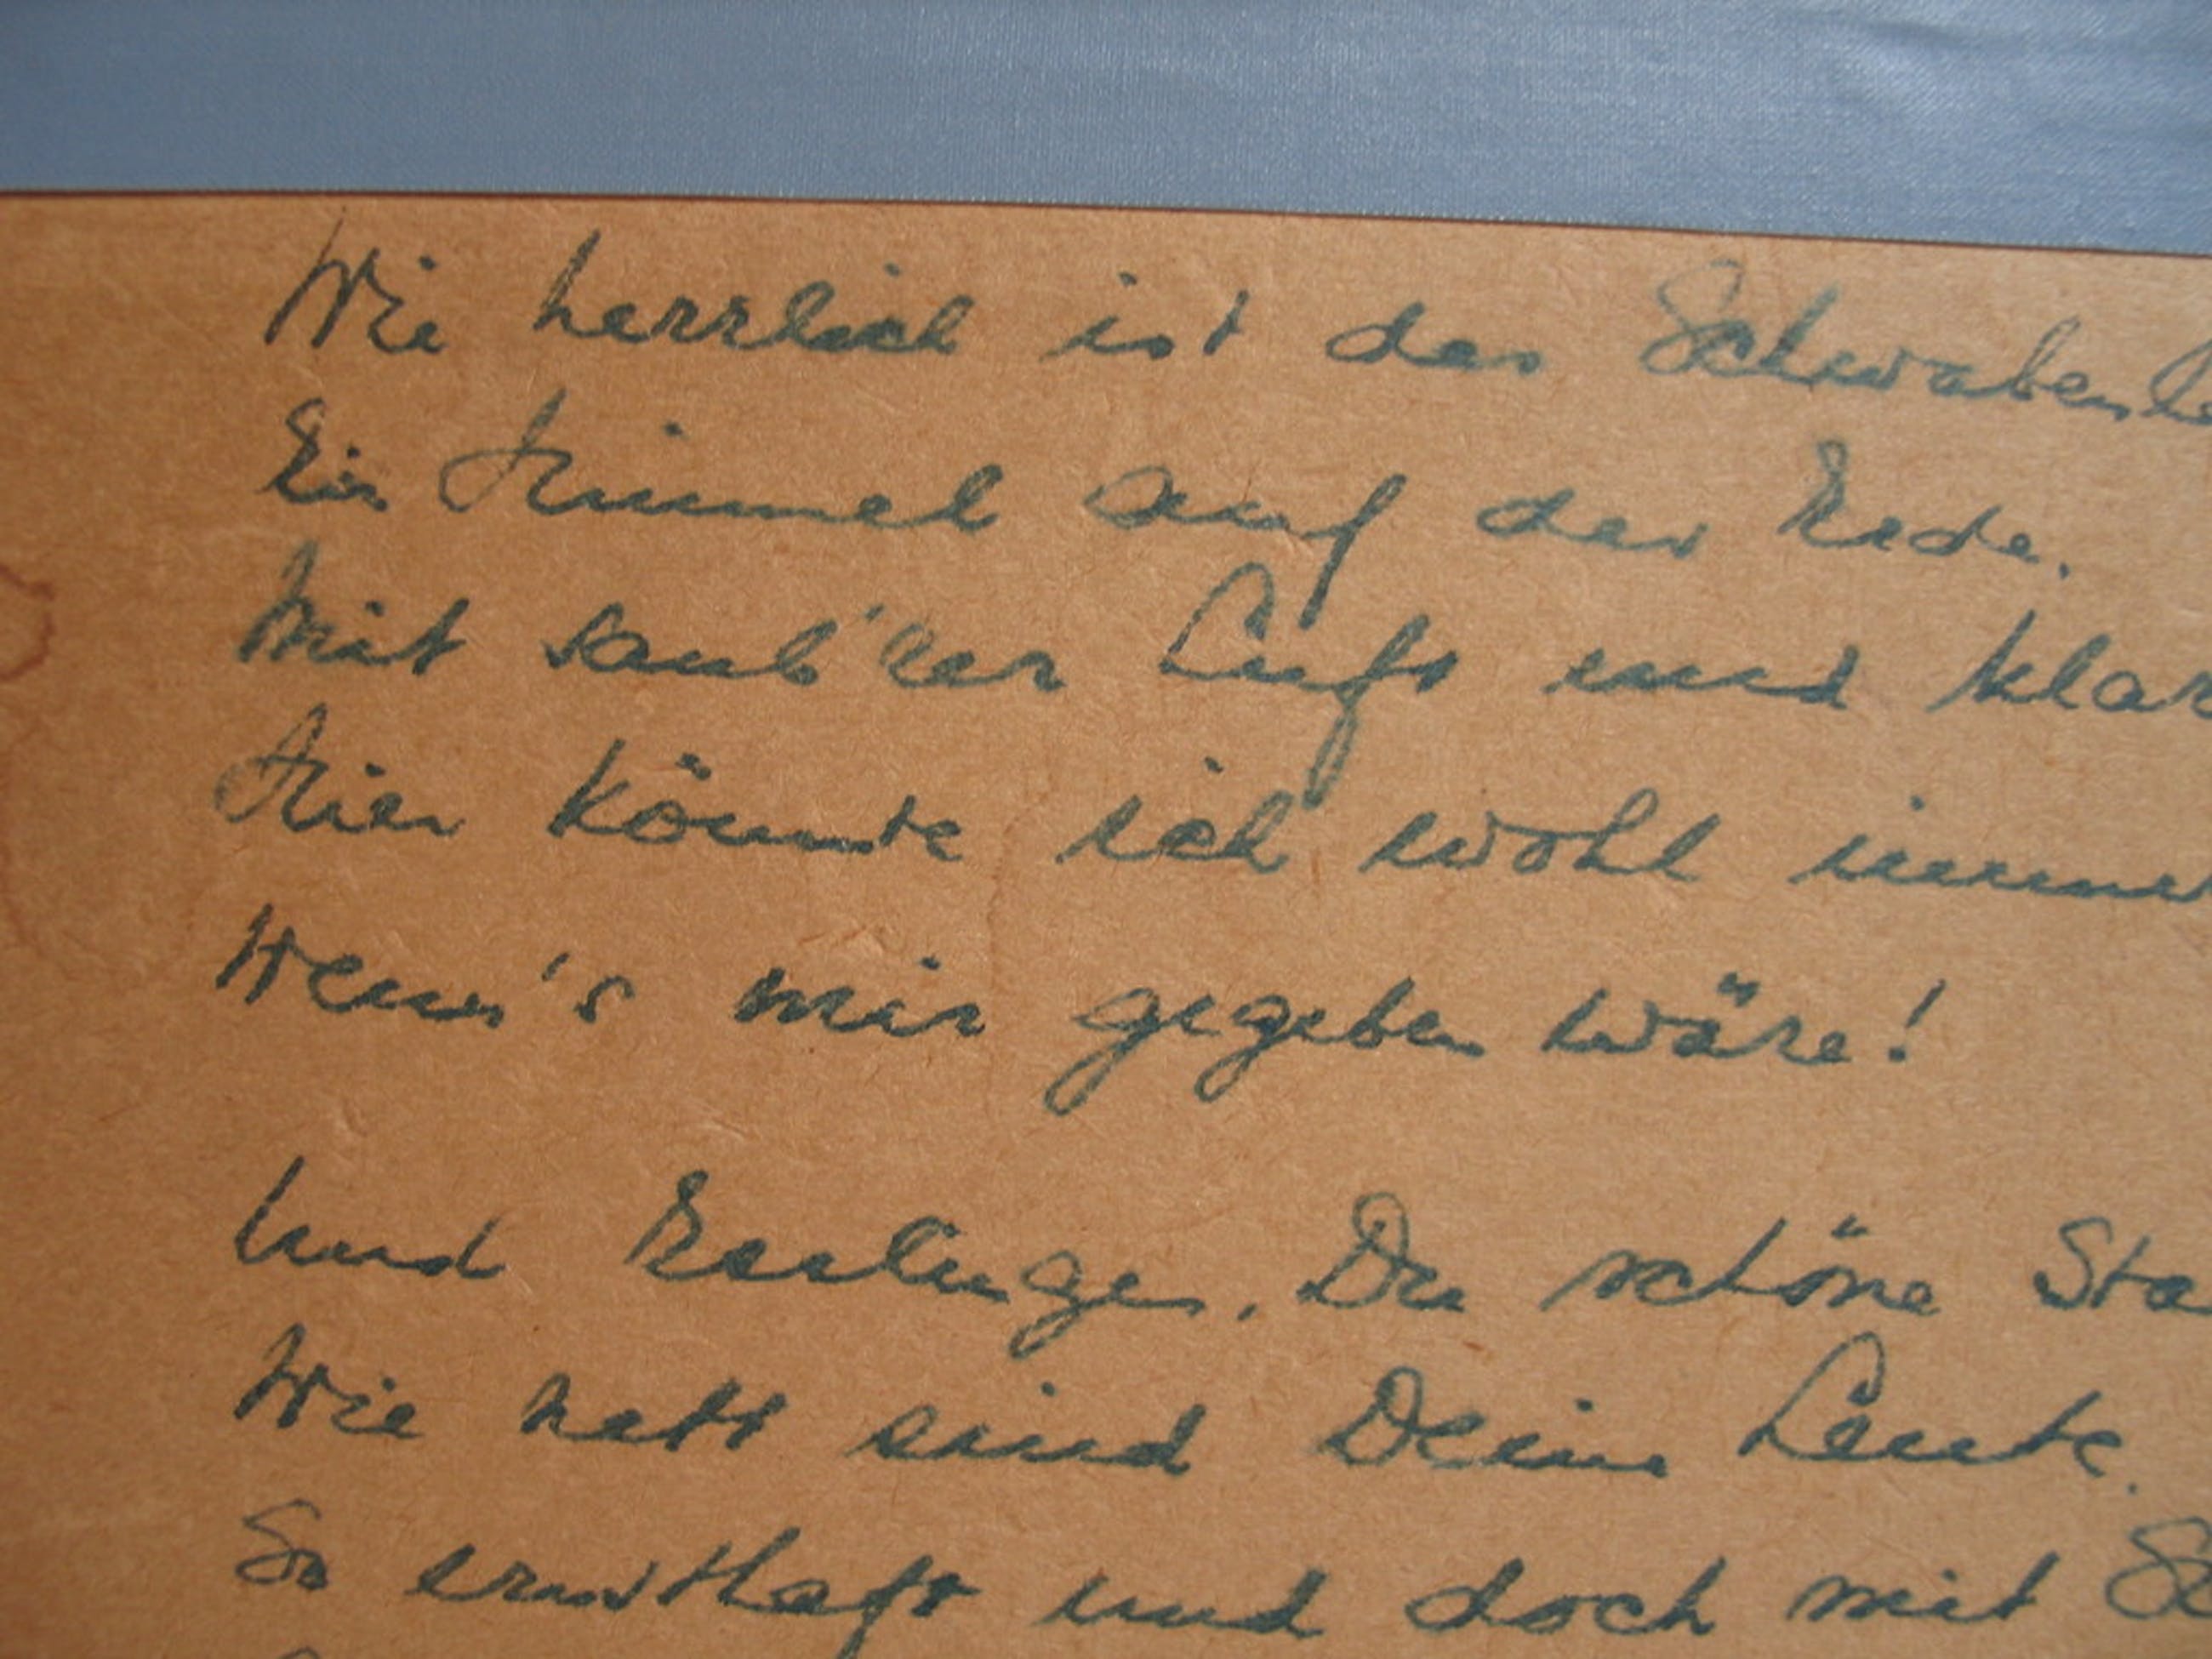 Wie herrlich ist das Schwaben
Ein Himmel auf der Erde.
Mit saub'rer Luft und klar
Hier könnte ich wohl immer
Wenn's mir gegeben wäre!
Und Esslingen, Du schöne Sta
Wie nett sind Deine Leute.
So ernsthaft und doch mit Sc